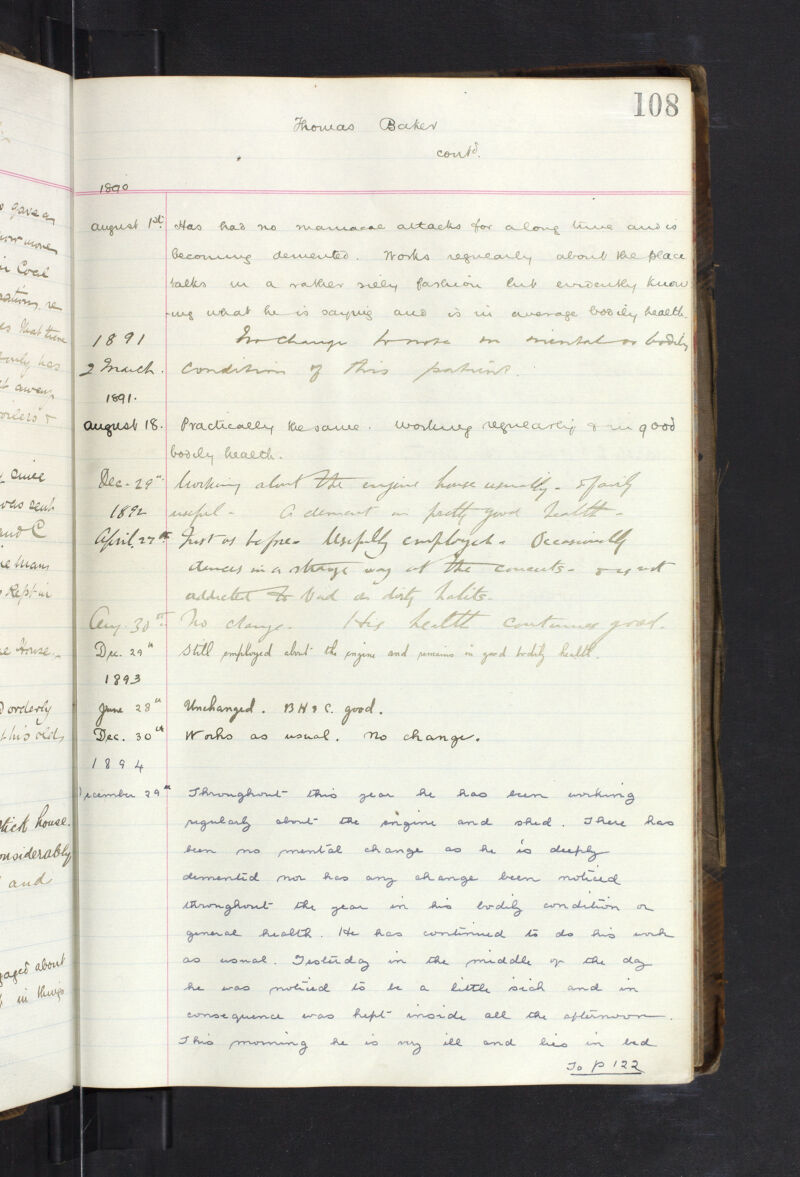 108
Thomas Baker
contd.
1890
August 1st. Has had no maniacal attacks for a long time and is
becoming demented. Works regularly about the place
talks in a rather silly fashion but evidently know
-ing what he is saying and is in average bodily health.
1891 No change to note in mental or bodily
2 March. condition of this patient.
1891.
August 18. Practically the same. Working regularly & in good
bodily health.
Dec. 29th. Working about the engine house usually - & fairly
1892 useful - A dement in pretty good health -
April. 27th Just as before. Usefully employed. Occasionally
dances in a strange way at the concerts - & is not
addicted to bad or dirty habits.
Aug. 30th. No change. His health continues good.
Dec. 29th Still employed about the engine and remains in good bodily health.
1893
June 28th Unchanged. B H & C. good.
Dec. 30th Works as usual. No change.
1894
December 29th Throughout this year he has been working
regularly about the engine and shed. There has
been no mental change as he is deeply
demented nor has any change been noticed
throughout the year in his bodily condition or
general health. He has continued to do his work
as usual. Yesterday in the middle of the day
he was noticed to be a little sick and in
consequence was kept inside all the afternoon.
This morning he is very ill and lies in bed
To P 122
gave a
more
Coal
re
as that time
has
&
since
was sent
and C
man
Kept in
House.
orderly
his old
stick house.
considerably
and
engaged about
in things